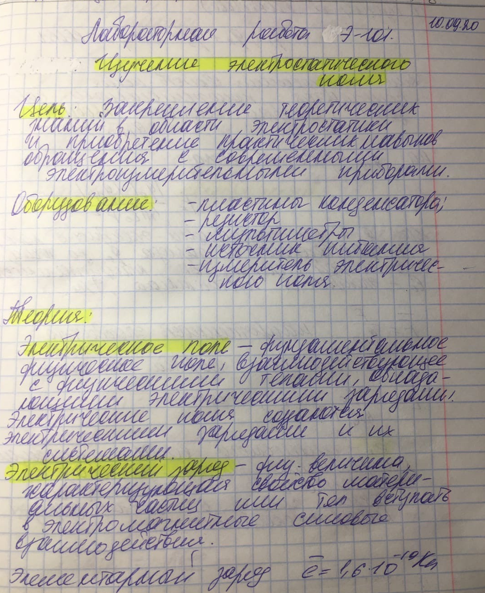 10.09.20
Лабораторная работа Э-101.
Изучение электростатического
поля
Цель: Закрепление теоретических
знаний в области электростатики
и приобретение практических навыков
обращения с современными
электроизмерительными приборами.
Оборудование: - пластины конденсатора;
- резистор
- мультиметры
- источник питания
- измеритель электричес-
кого поля
Теория:
Электрическое поле – фундаментальное
физическое поле, взаимодействующее
с физическими телами, облада-
ющими электрическими зарядами.
Электрические поля создаются
электрическими зарядами и их
системами.
Электрический заряд – физ. величина,
характеризующая свойство матери-
альных частиц или тел вступать
в электромагнитные силовые
взаимодействия.
Элементарный заряд e̅ = 1,6·10⁻¹⁹ Кл